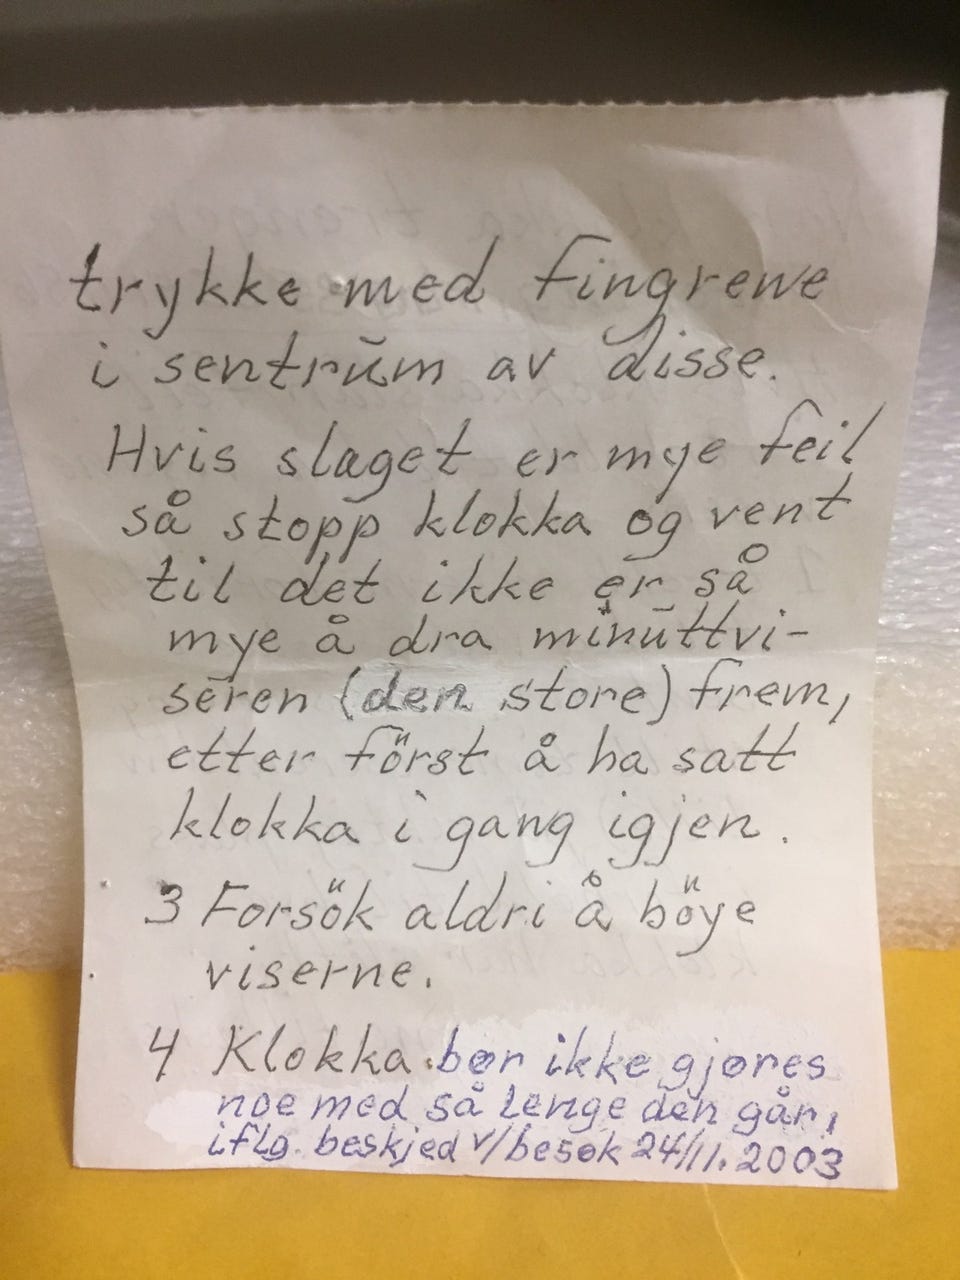 trykke med fingrene
i sentrŭm av disse.
Hvis slaget er mye feil
så stopp klokka og vent
til det ikke er så
mye å dra minuttvi-
seren (den store) frem,
etter först å ha satt
klokka i gang igjen.
3 Forsök aldri å böye
viserne.
4 Klokka bør ikke gjøres
noe med så lenge den går,
iflg. beskjed v/besøk 24/11.2003